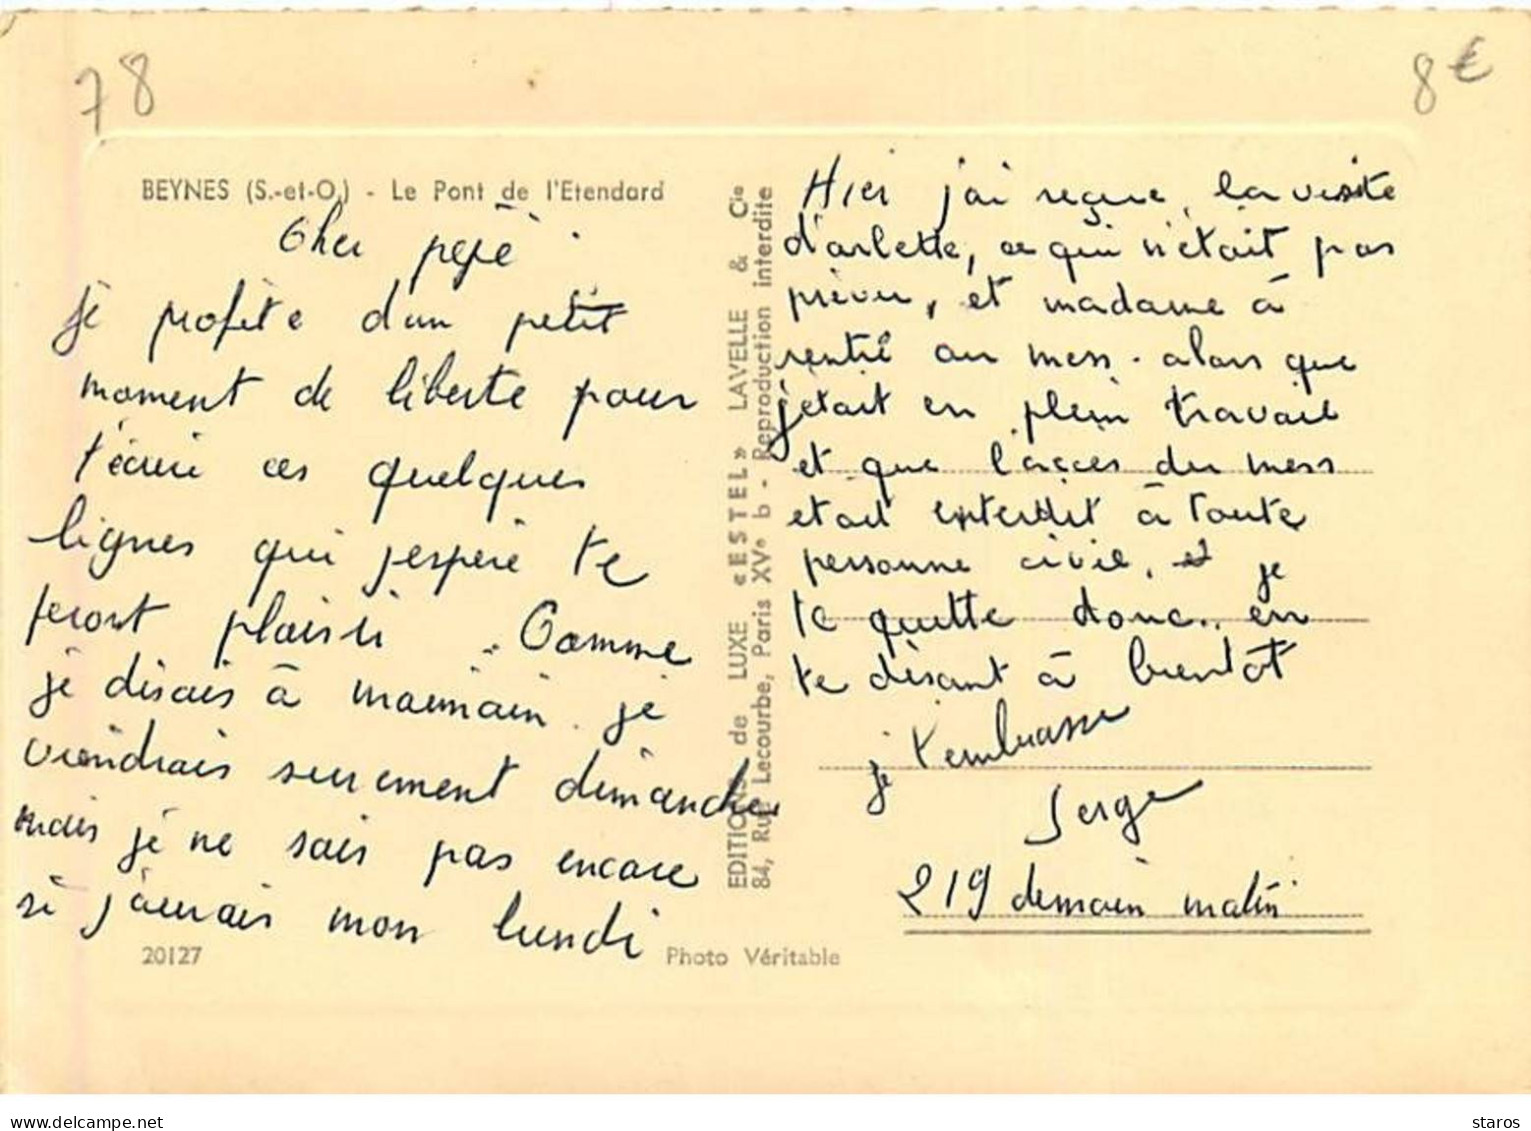 78
8€
BEYNES (S.-et-O.) - Le Pont de l'Etendard
Cher pépé.
Je profite d'un petit
moment de liberté pour
t'écrire ces quelques
lignes qui j'espère te
feront plaisir. Comme
je disais à mainain je
viendrais surement dimanche
mais je ne sais pas encore
si j'aurais mon lundi
20127
Photo Véritable
EDITIONS de LUXE «ESTEL» LAVELLE & Cie
84, Rue Lecourbe, Paris XVe b - Reproduction interdite
Hier j'ai reçue la visite
d'arlette, ce qui n'était pas
prévu, et madame à
rentré au mess. alors que
j'étais en plein travail
et que l'accès du mess
était interdit à toute
personne civil, et je
te quitte donc.. en
te disant à bientôt
je t'embrasse
Serge
219 demain matin
delcampe.net
staros